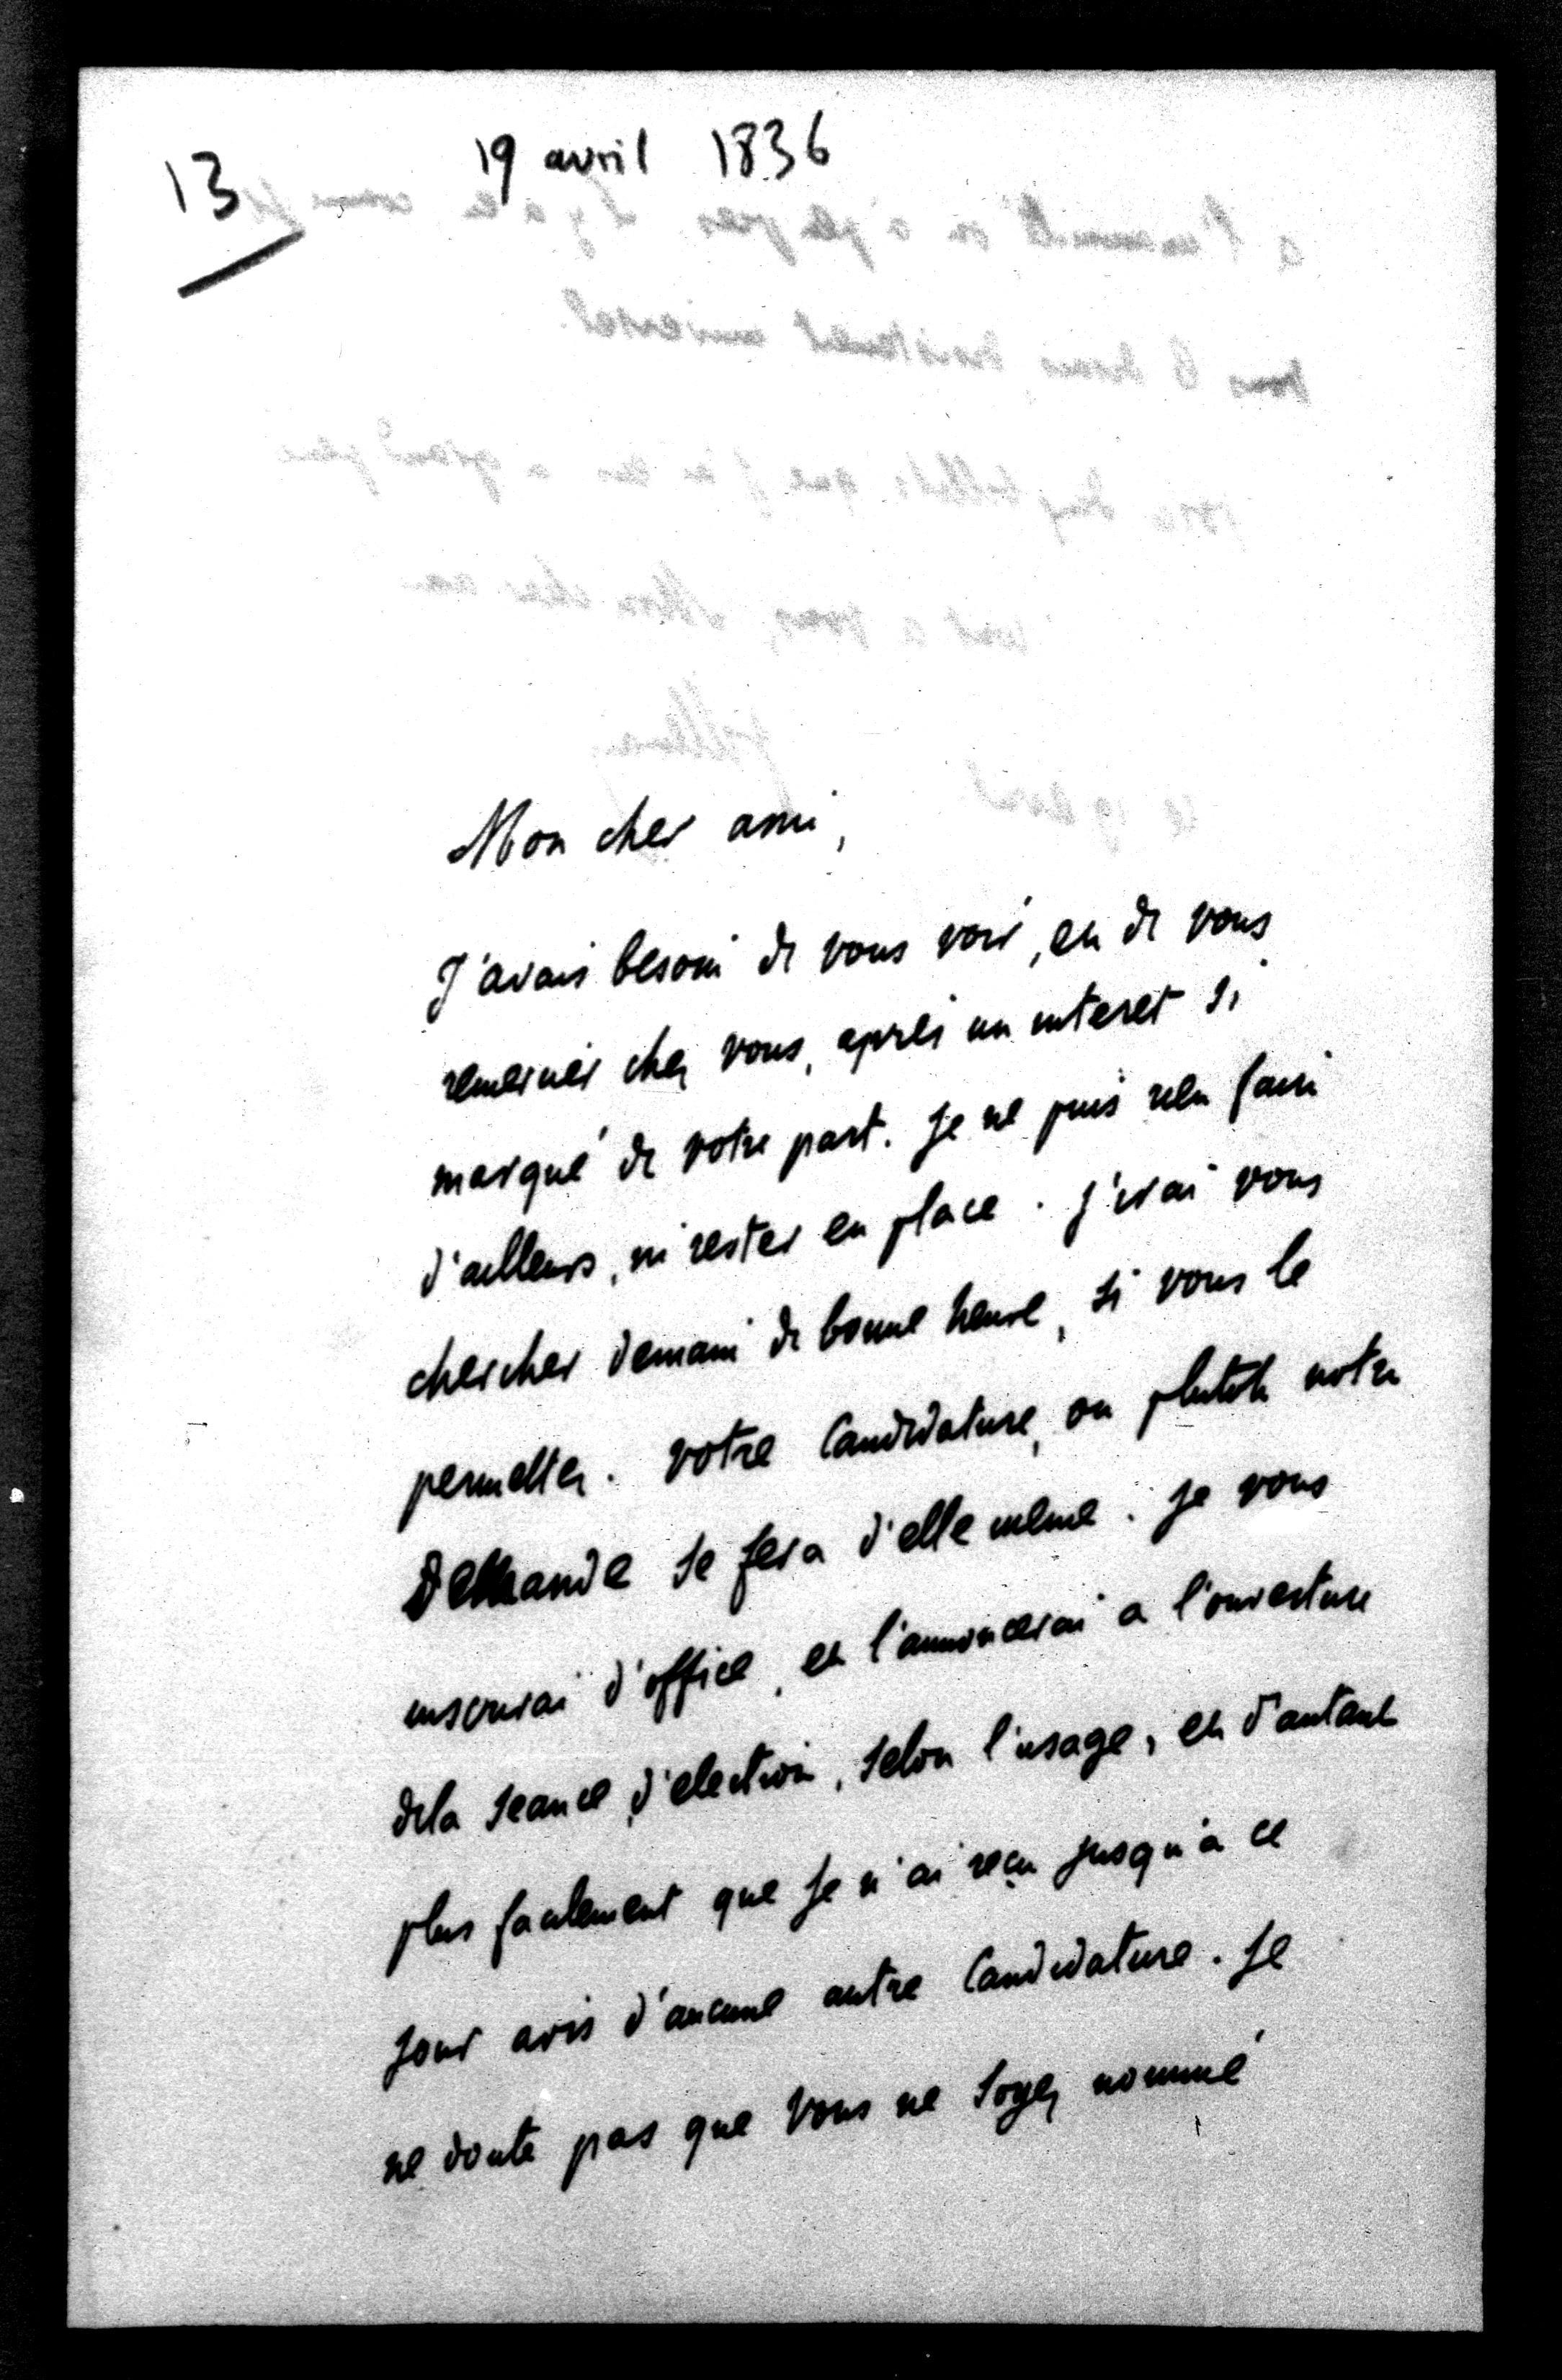 13
19 avril 1836
Mon cher ami,
J'avais besoin de vous voir, et de vous
remercier chez vous, après un interet si
marqué de votre part. Je ne puis rien faire
d'ailleurs, ni rester en place. j'irai vous
chercher demain de bonne heure, si vous le
permettez. votre Candidature, ou plutôt notre
Demande se fera d'elle meme. Je vous
inscrirai d'office, et l'annoncerai a l'ouverture
dela seance d'election, selon l'usage, et d'autant
plus facilement que Je n'ai reçu jusqu'à ce
jour avis d'aucune autre Candidature. Je
ne doute pas que Vous ne Soyez nommé